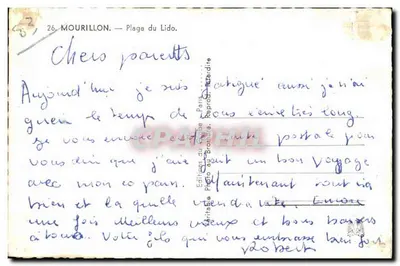 26. MOURILLON. — Plage du Lido.
Chers parents
Aujourd'hui je suis fatigué aussi je n'ai
guere le temps de vous écrire très long
Je vous envoie une postale pour
vous dire que j'ai fait un bon voyage
avec mon copain. Maintenant tout va
bien et la quille viendra vite. Encore
une fois meilleurs vœux et bons baisers
à tous. Votre fils qui vous embrasse bien fort
Robert